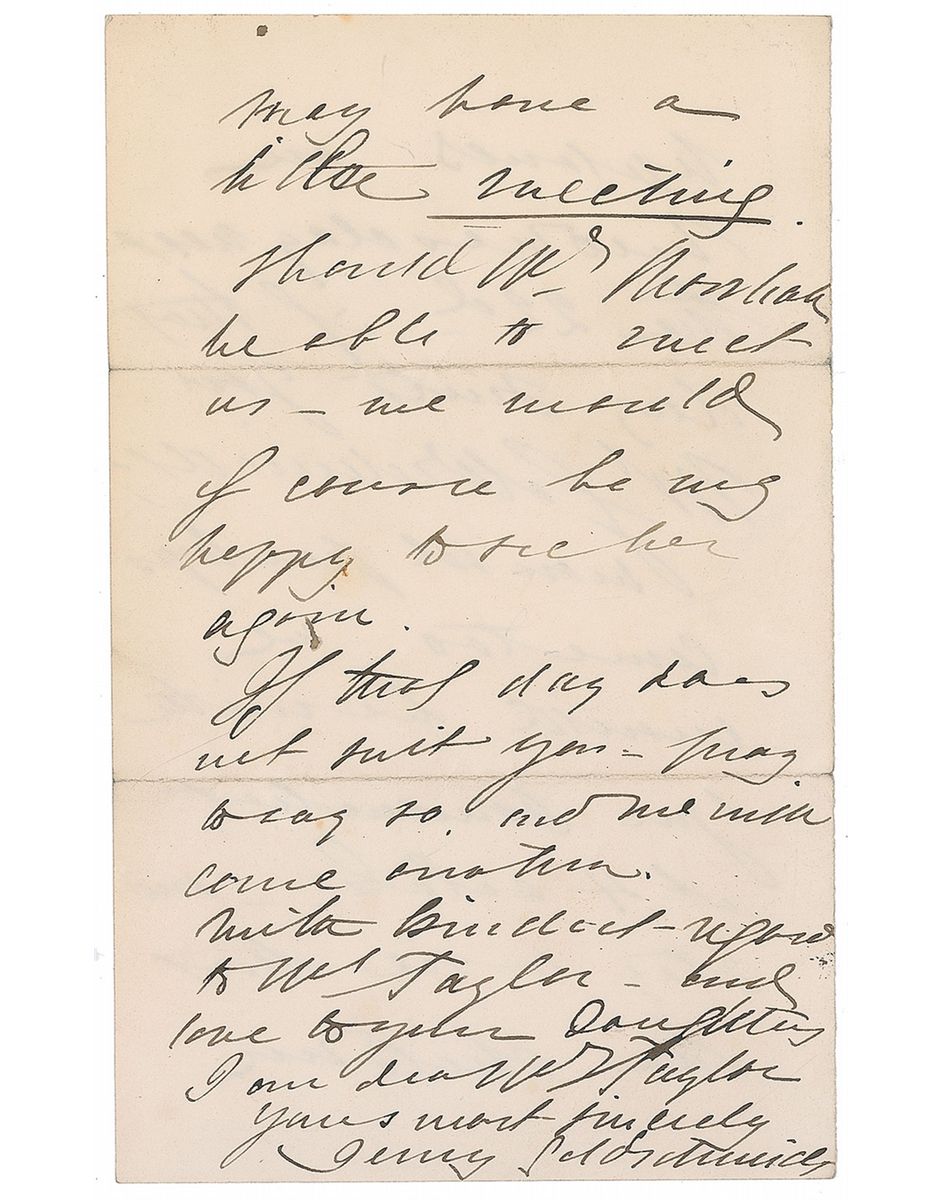 may have a
little meeting.
Should Mrs
be able to meet
us – we would
of course be very
happy to see her
again.
If that day does
not suit you – pray
to say so. and we will
come another.
With kindest – regard
to Mr Taylor – and
love to your Daughters
I am dear Mrs Taylor
yours most sincerely
Jenny Goldschmidt